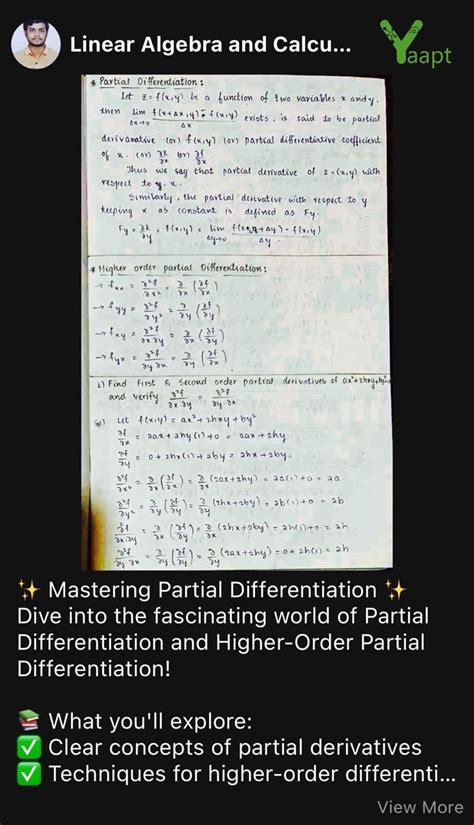 Linear Algebra and Calcu...
Yaapt
* Partial Differentiation :
Let z = f(x,y) be a function of two variables x and y,
then lim Δx→0 f(x+Δx,y) - f(x,y) / Δx exists, is said to be partial
derivative (or) f(x,y) (or) partial differentiative coefficient
of x. (or) ∂z/∂x (or) ∂f/∂x
Thus we say that partial derivative of z=(x,y) with
respect to x.
Similarly, the partial derivative with respect to y
keeping x as constant is defined as Fy.
Fy = ∂z/∂y , f(x,y) = lim Δy→0 f(x,y+Δy) - f(x,y) / Δy
* Higher order partial Differentiation :
→ fxx = ∂²f/∂x² = ∂/∂x (∂f/∂x)
→ fyy = ∂²f/∂y² = ∂/∂y (∂f/∂y)
→ fxy = ∂²f/∂x∂y = ∂/∂x (∂f/∂y)
→ fyx = ∂²f/∂y∂x = ∂/∂y (∂f/∂x)
1) Find First & Second order partial derivatives of ax²+2hxy+by²
and verify ∂²f/∂x∂y = ∂²f/∂y∂x
Let f(x,y) = ax² + 2hxy + by²
∂f/∂x = 2ax + 2hy(1) + 0 = 2ax + 2hy
∂f/∂y = 0 + 2hx(1) + 2by = 2hx + 2by
∂²f/∂x² = ∂/∂x (∂f/∂x) = ∂/∂x (2ax+2hy) = 2a(1)+0 = 2a
∂²f/∂y² = ∂/∂y (∂f/∂y) = ∂/∂y (2hx+2by) = 2b(1)+0 = 2b
∂²f/∂x∂y = ∂/∂x (∂f/∂y) = ∂/∂x (2hx+2by) = 2h(1)+0 = 2h
∂²f/∂y∂x = ∂/∂y (∂f/∂x) = ∂/∂y (2ax+2hy) = 0+2h(1) = 2h
✨ Mastering Partial Differentiation ✨
Dive into the fascinating world of Partial
Differentiation and Higher-Order Partial
Differentiation!
📚 What you'll explore:
✅ Clear concepts of partial derivatives
✅ Techniques for higher-order differenti...
View More